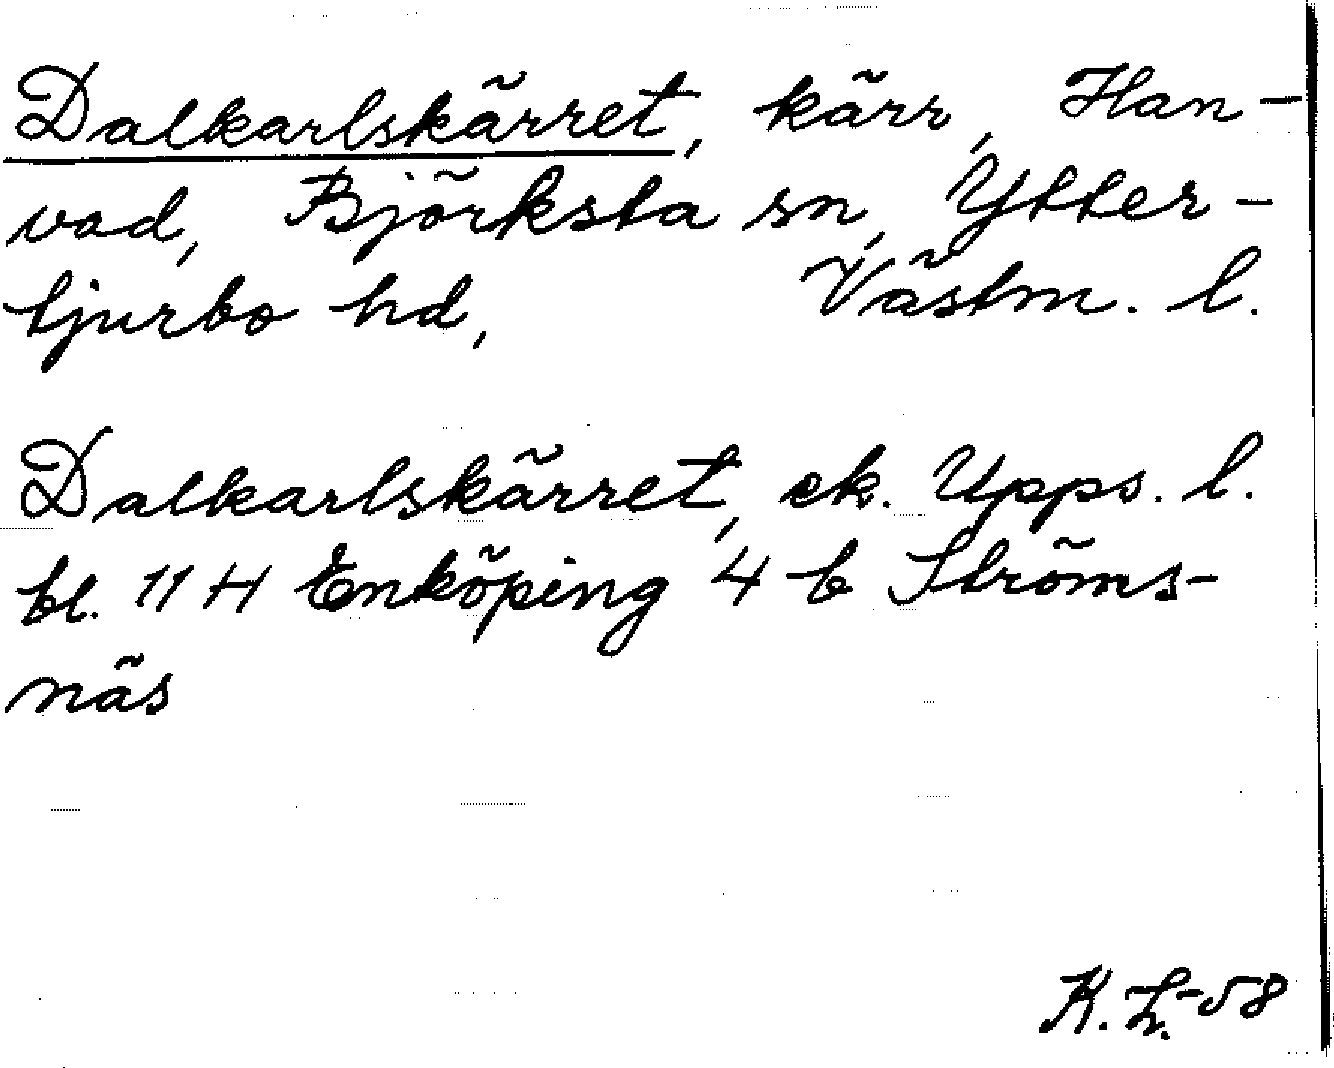 Dalkarlskärret, kärr, Han-
vad, Björksta sn, Ytter-
tjurbo hd, Västm. l.
Dalkarlskärret, ek. Upps. l.
bl. 11 H Enköping 4 b Ströms-
näs
K. L. -58